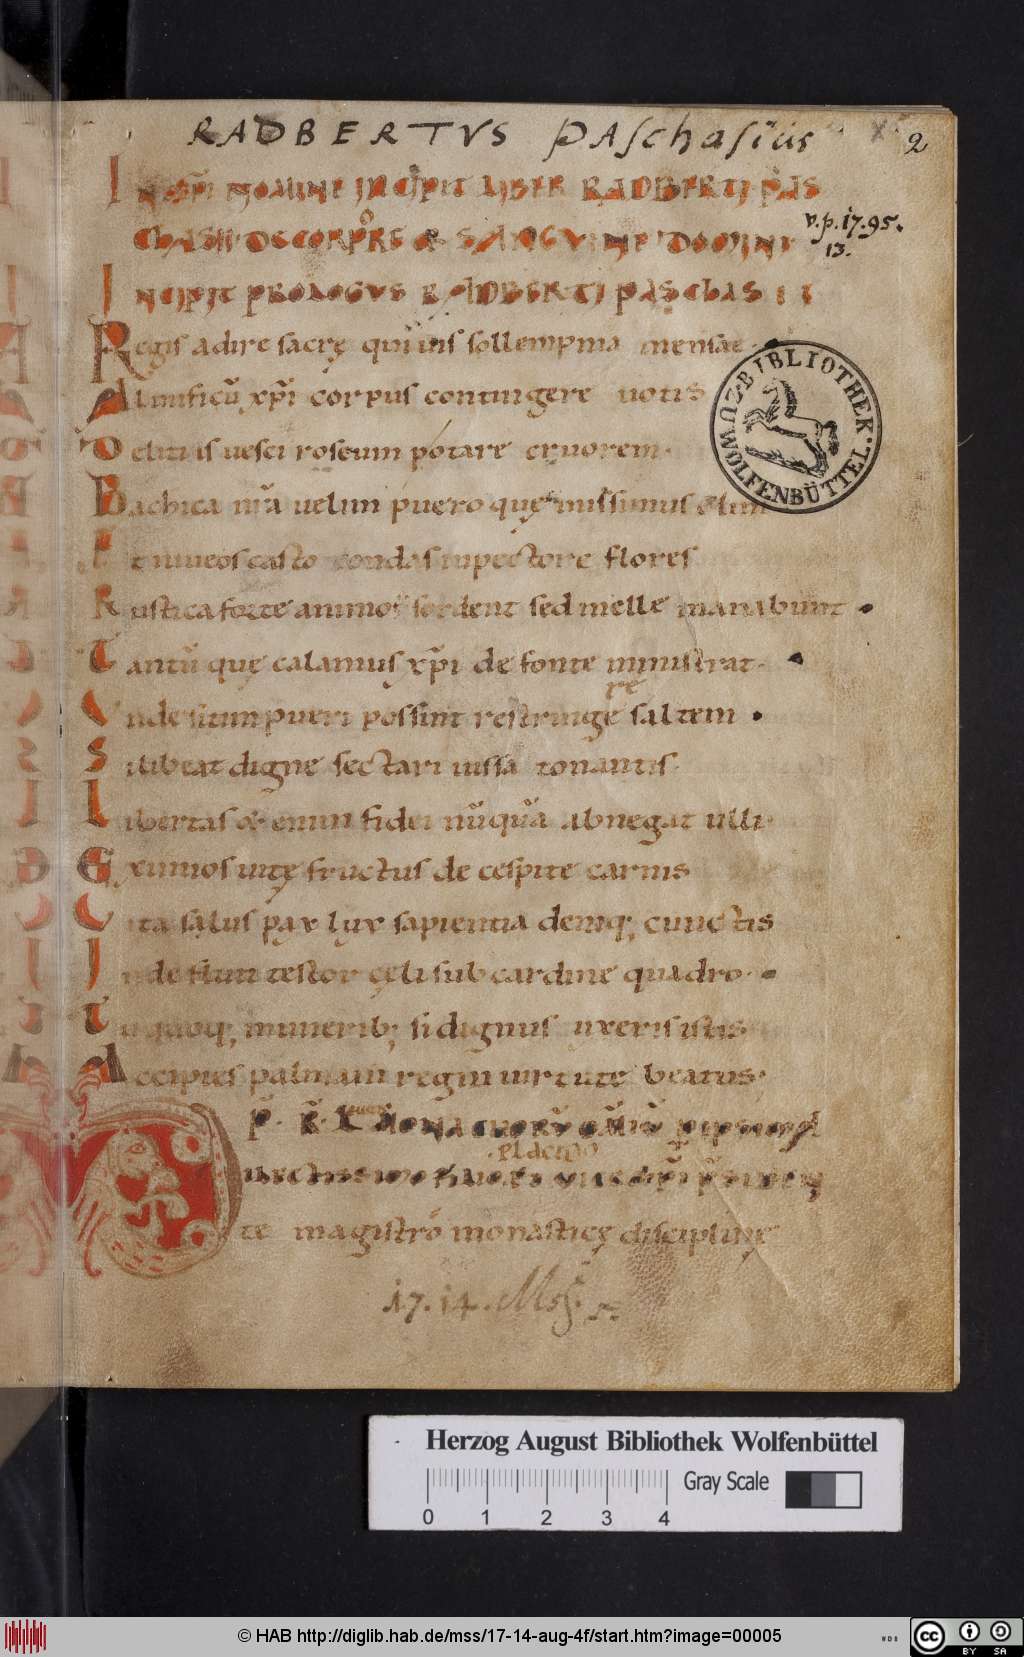 RADBERTVS PASchasius
2
IN XPI NOMINE INCIPIT LIBER RADBERTI PAS
CHASII DE CORPORE & SANGVINE DOMINI
v.p.17.95.
13.
INCIPIT PROLOGVS RADBERTI PASCHASII
Regis adire sacrę qui uis sollempnia mensae
Almificū xp̄i corpus contingere uotis
Deliti is uesci roseum potare cruorem.
Bachica nr̄a uelim puero quę missimus
Et niueos casto condas in pectore flores
Rustica forte animos sordent sed melle manabunt
Tantū quę calamus xp̄i de fonte ministrat.
Vnde sitim pueri possint restringere saltem
Si libeat digne sectari iussa tonantis.
Libertas & enim fidei nūquā abnegat ulli.
Eximios uitę fructus de cespite carnis
Vita salus pax lux sapientia deniq; cunctis
Inde fluit testor cęli sub cardine quadro.
Tu quoq; munerib; si dignus uxeris istis
Accipies palmam regni uirtute beatus.
P. R. MONACHORV̄
placido
DILECTISSIMO XP̄I
te magistro monasticę disciplinę
17.14. Ms.
BIBLIOTHEK. ZU WOLFENBÜTTEL
Herzog August Bibliothek Wolfenbüttel
Gray Scale
0 1 2 3 4
© HAB http://diglib.hab.de/mss/17-14-aug-4f/start.htm?image=00005
WDB
cc BY SA